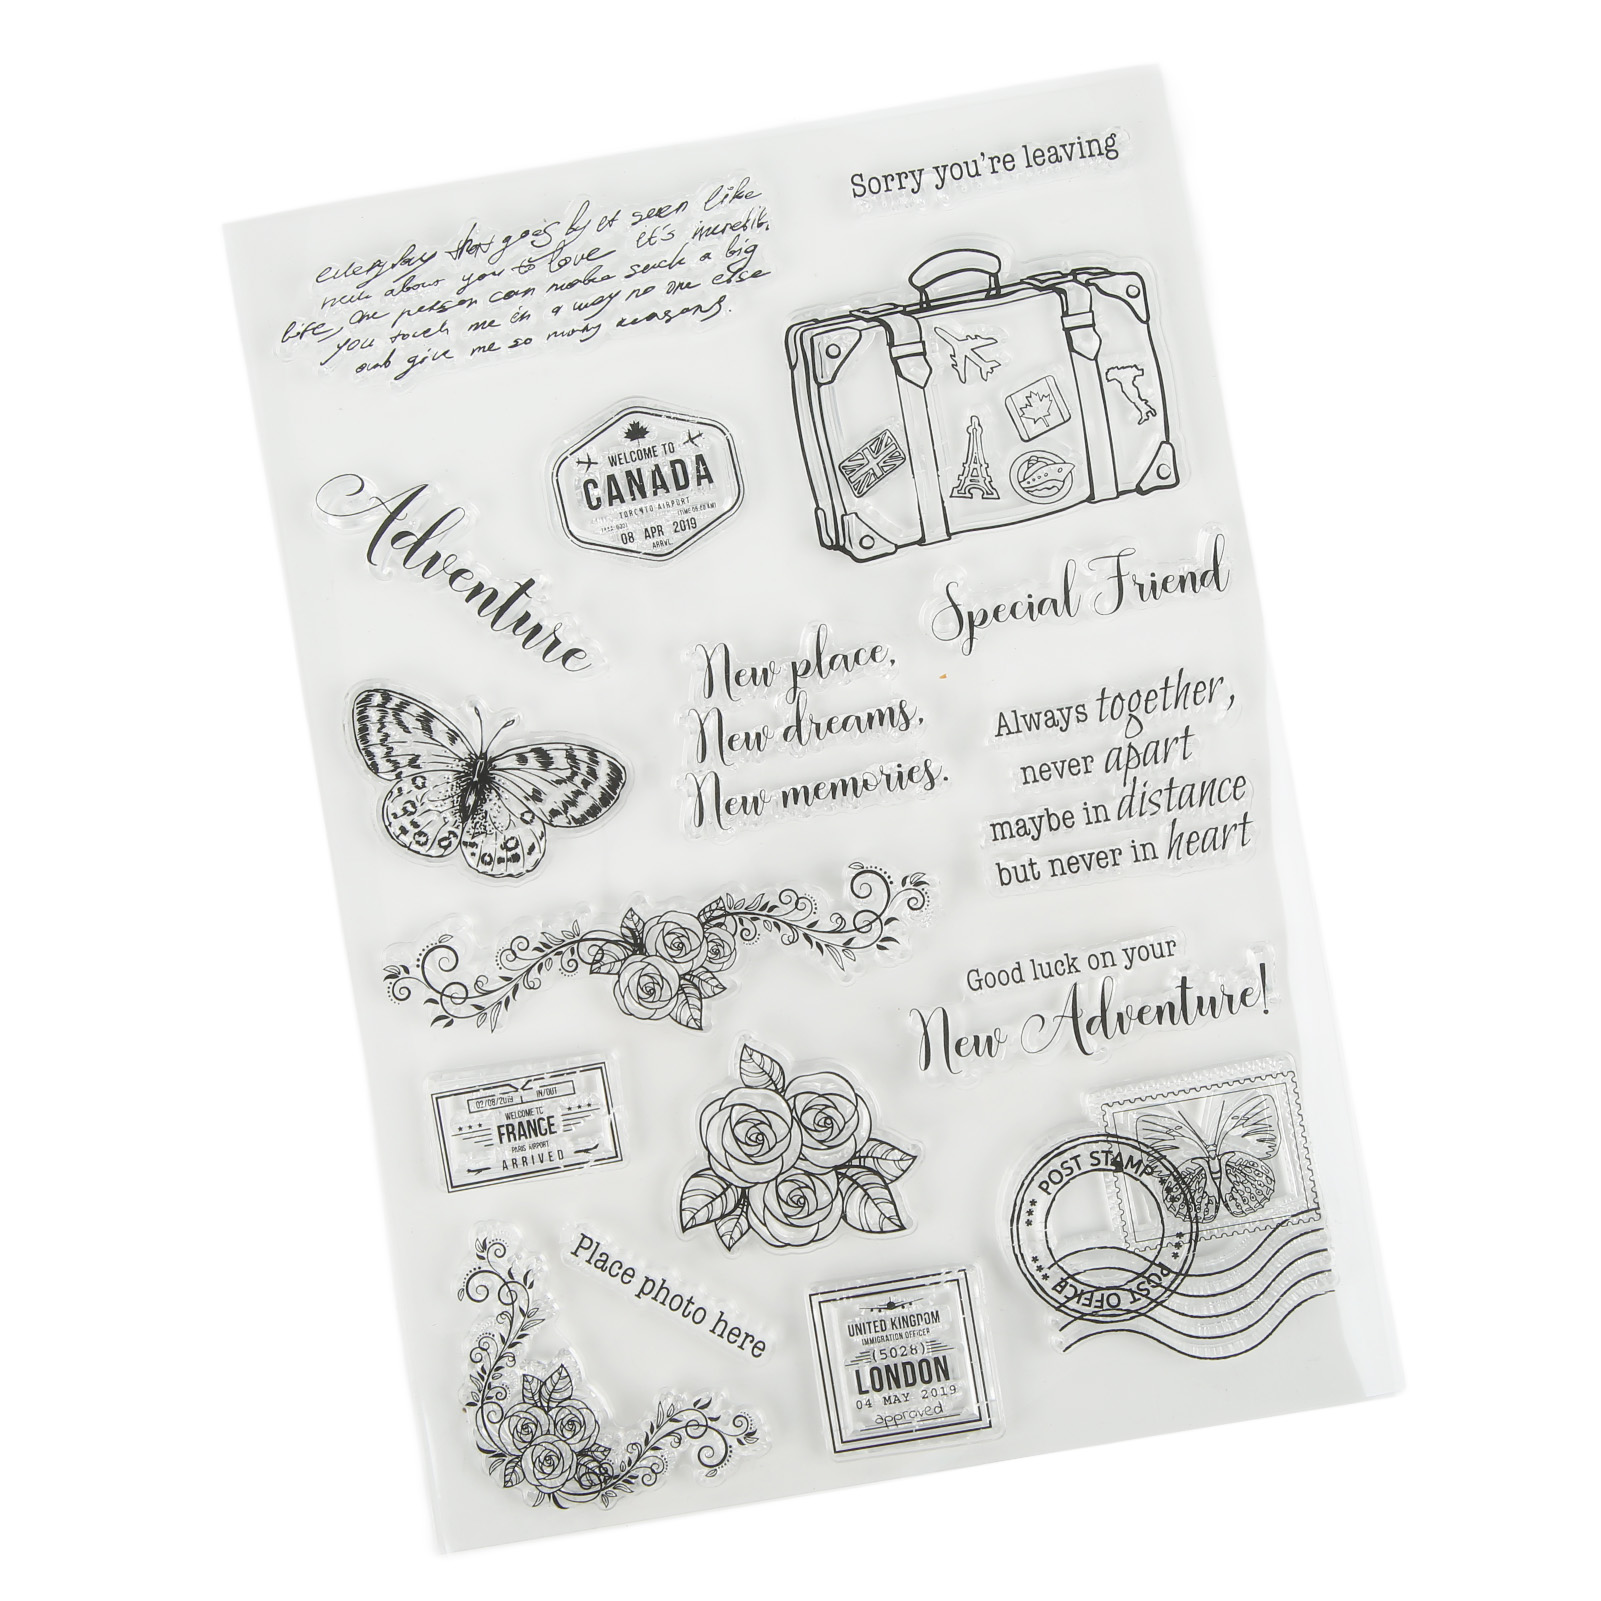 Sorry you're leaving
everyday that goes by it seem like
about you to love it's incredib.
life, one person can make such a big
you touch me in a way no one else
and give me so many reasons.
WELCOME TO
CANADA
TORONTO AIRPORT
08 APR 2019
Adventure
Special Friend
New place,
New dreams,
New memories.
Always together,
never apart
maybe in distance
but never in heart
Good luck on your
New Adventure!
02/08/2019 IN/OUT
WELCOME TO
FRANCE
PARIS AIRPORT
ARRIVED
POST STAMP
POST OFFICE
Place photo here
UNITED KINGDOM
IMMIGRATION OFFICER
(5028)
LONDON
04 MAY 2019
approved